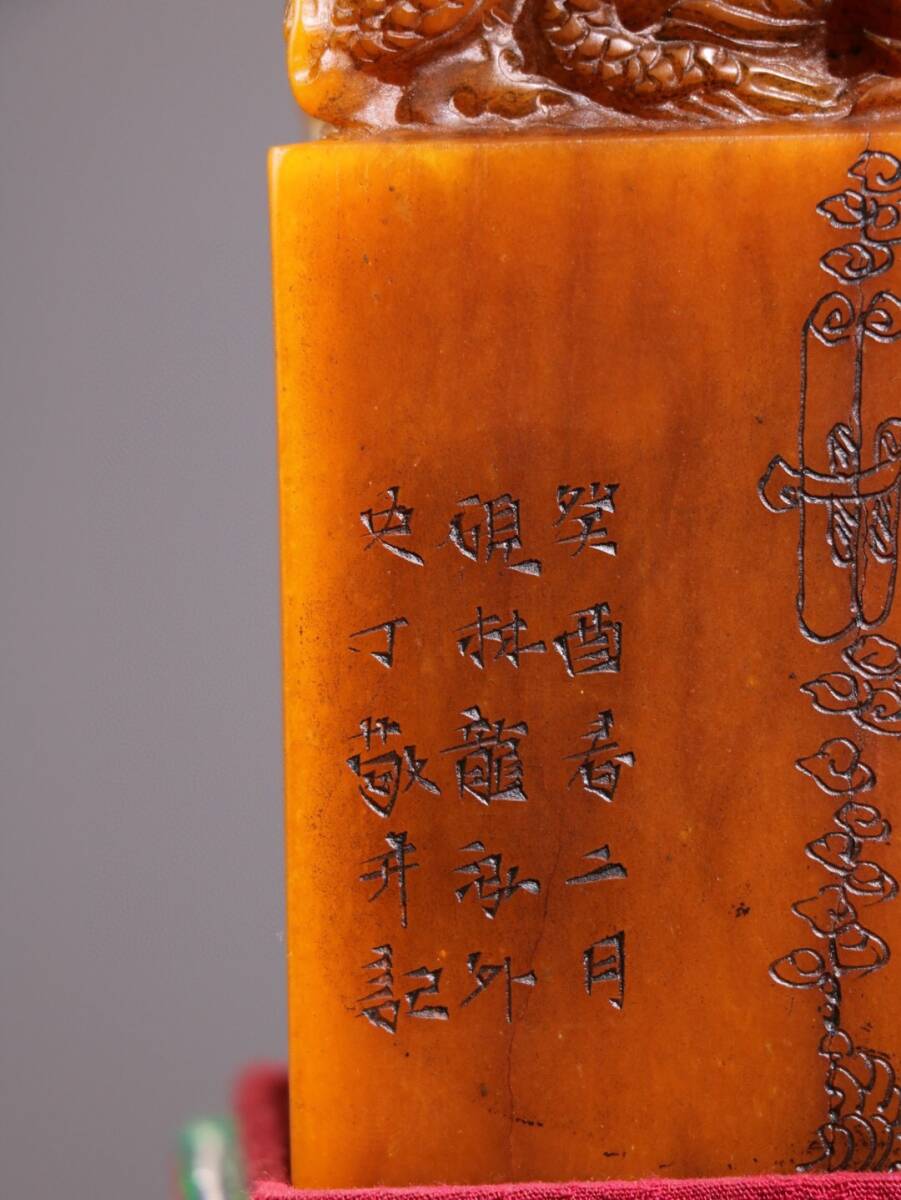 癸酉春二月
硯林龍泓外
史丁敬并記